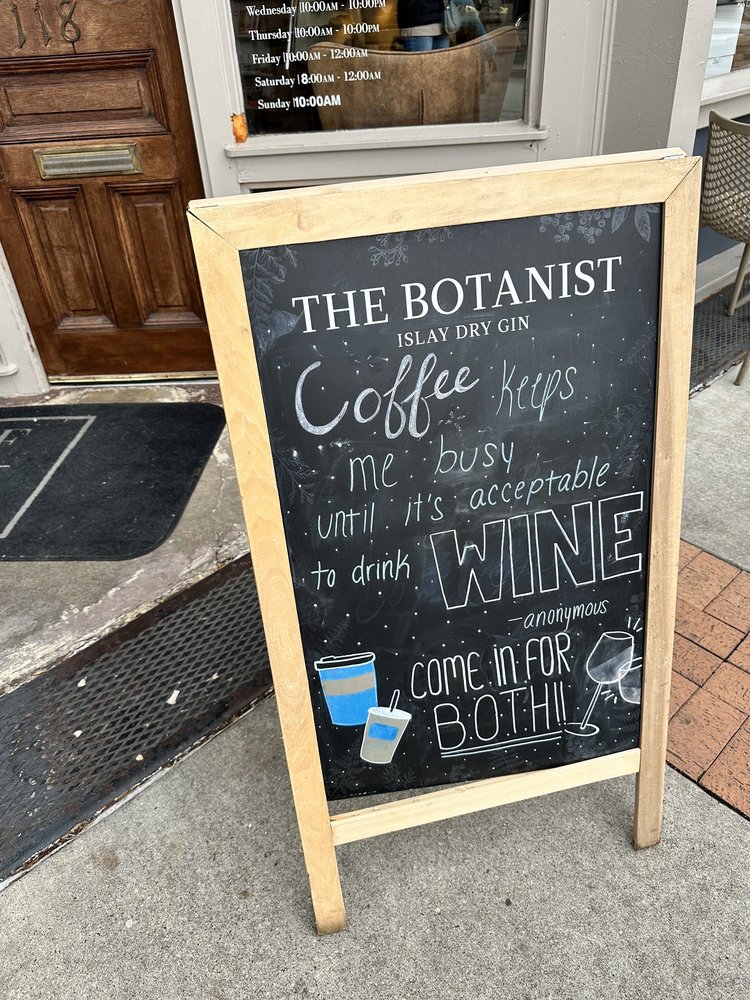 118
Wednesday | 10:00AM - 10:00PM
Thursday | 10:00AM - 10:00PM
Friday | 10:00AM - 12:00AM
Saturday | 8:00AM - 12:00AM
Sunday | 10:00AM
THE BOTANIST
ISLAY DRY GIN
Coffee keeps
me busy
until it's acceptable
to drink WINE
-anonymous
COME IN FOR
BOTH!!